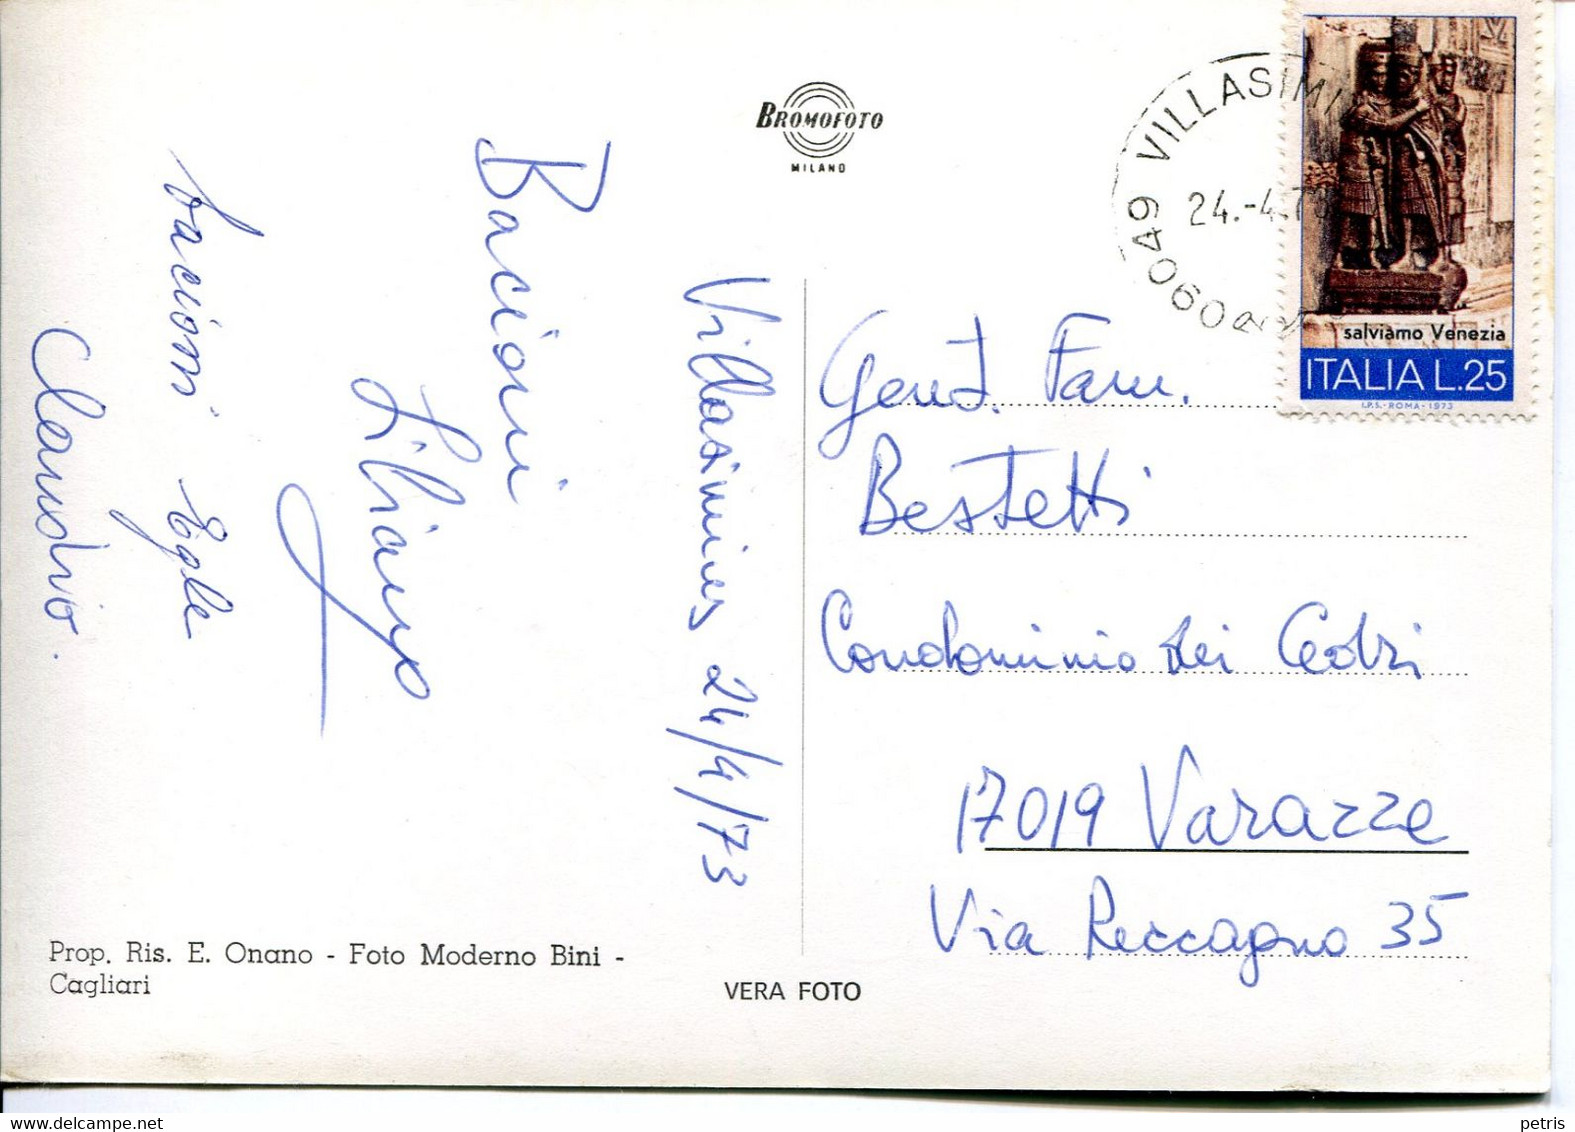 BROMOFOTO
MILANO
09049 VILLASIMI
24.-4.73
salviamo Venezia
ITALIA L.25
I.P.S.-ROMA-1973
Villasimius 24/4/73
Bacioni
Liliana
bacioni Egle
Claudio.
Gent. Fam.
Bestetti
Condominio dei Cedri
17019 Varazze
Via Reccagno 35
Prop. Ris. E. Onano - Foto Moderno Bini -
Cagliari
VERA FOTO
petris